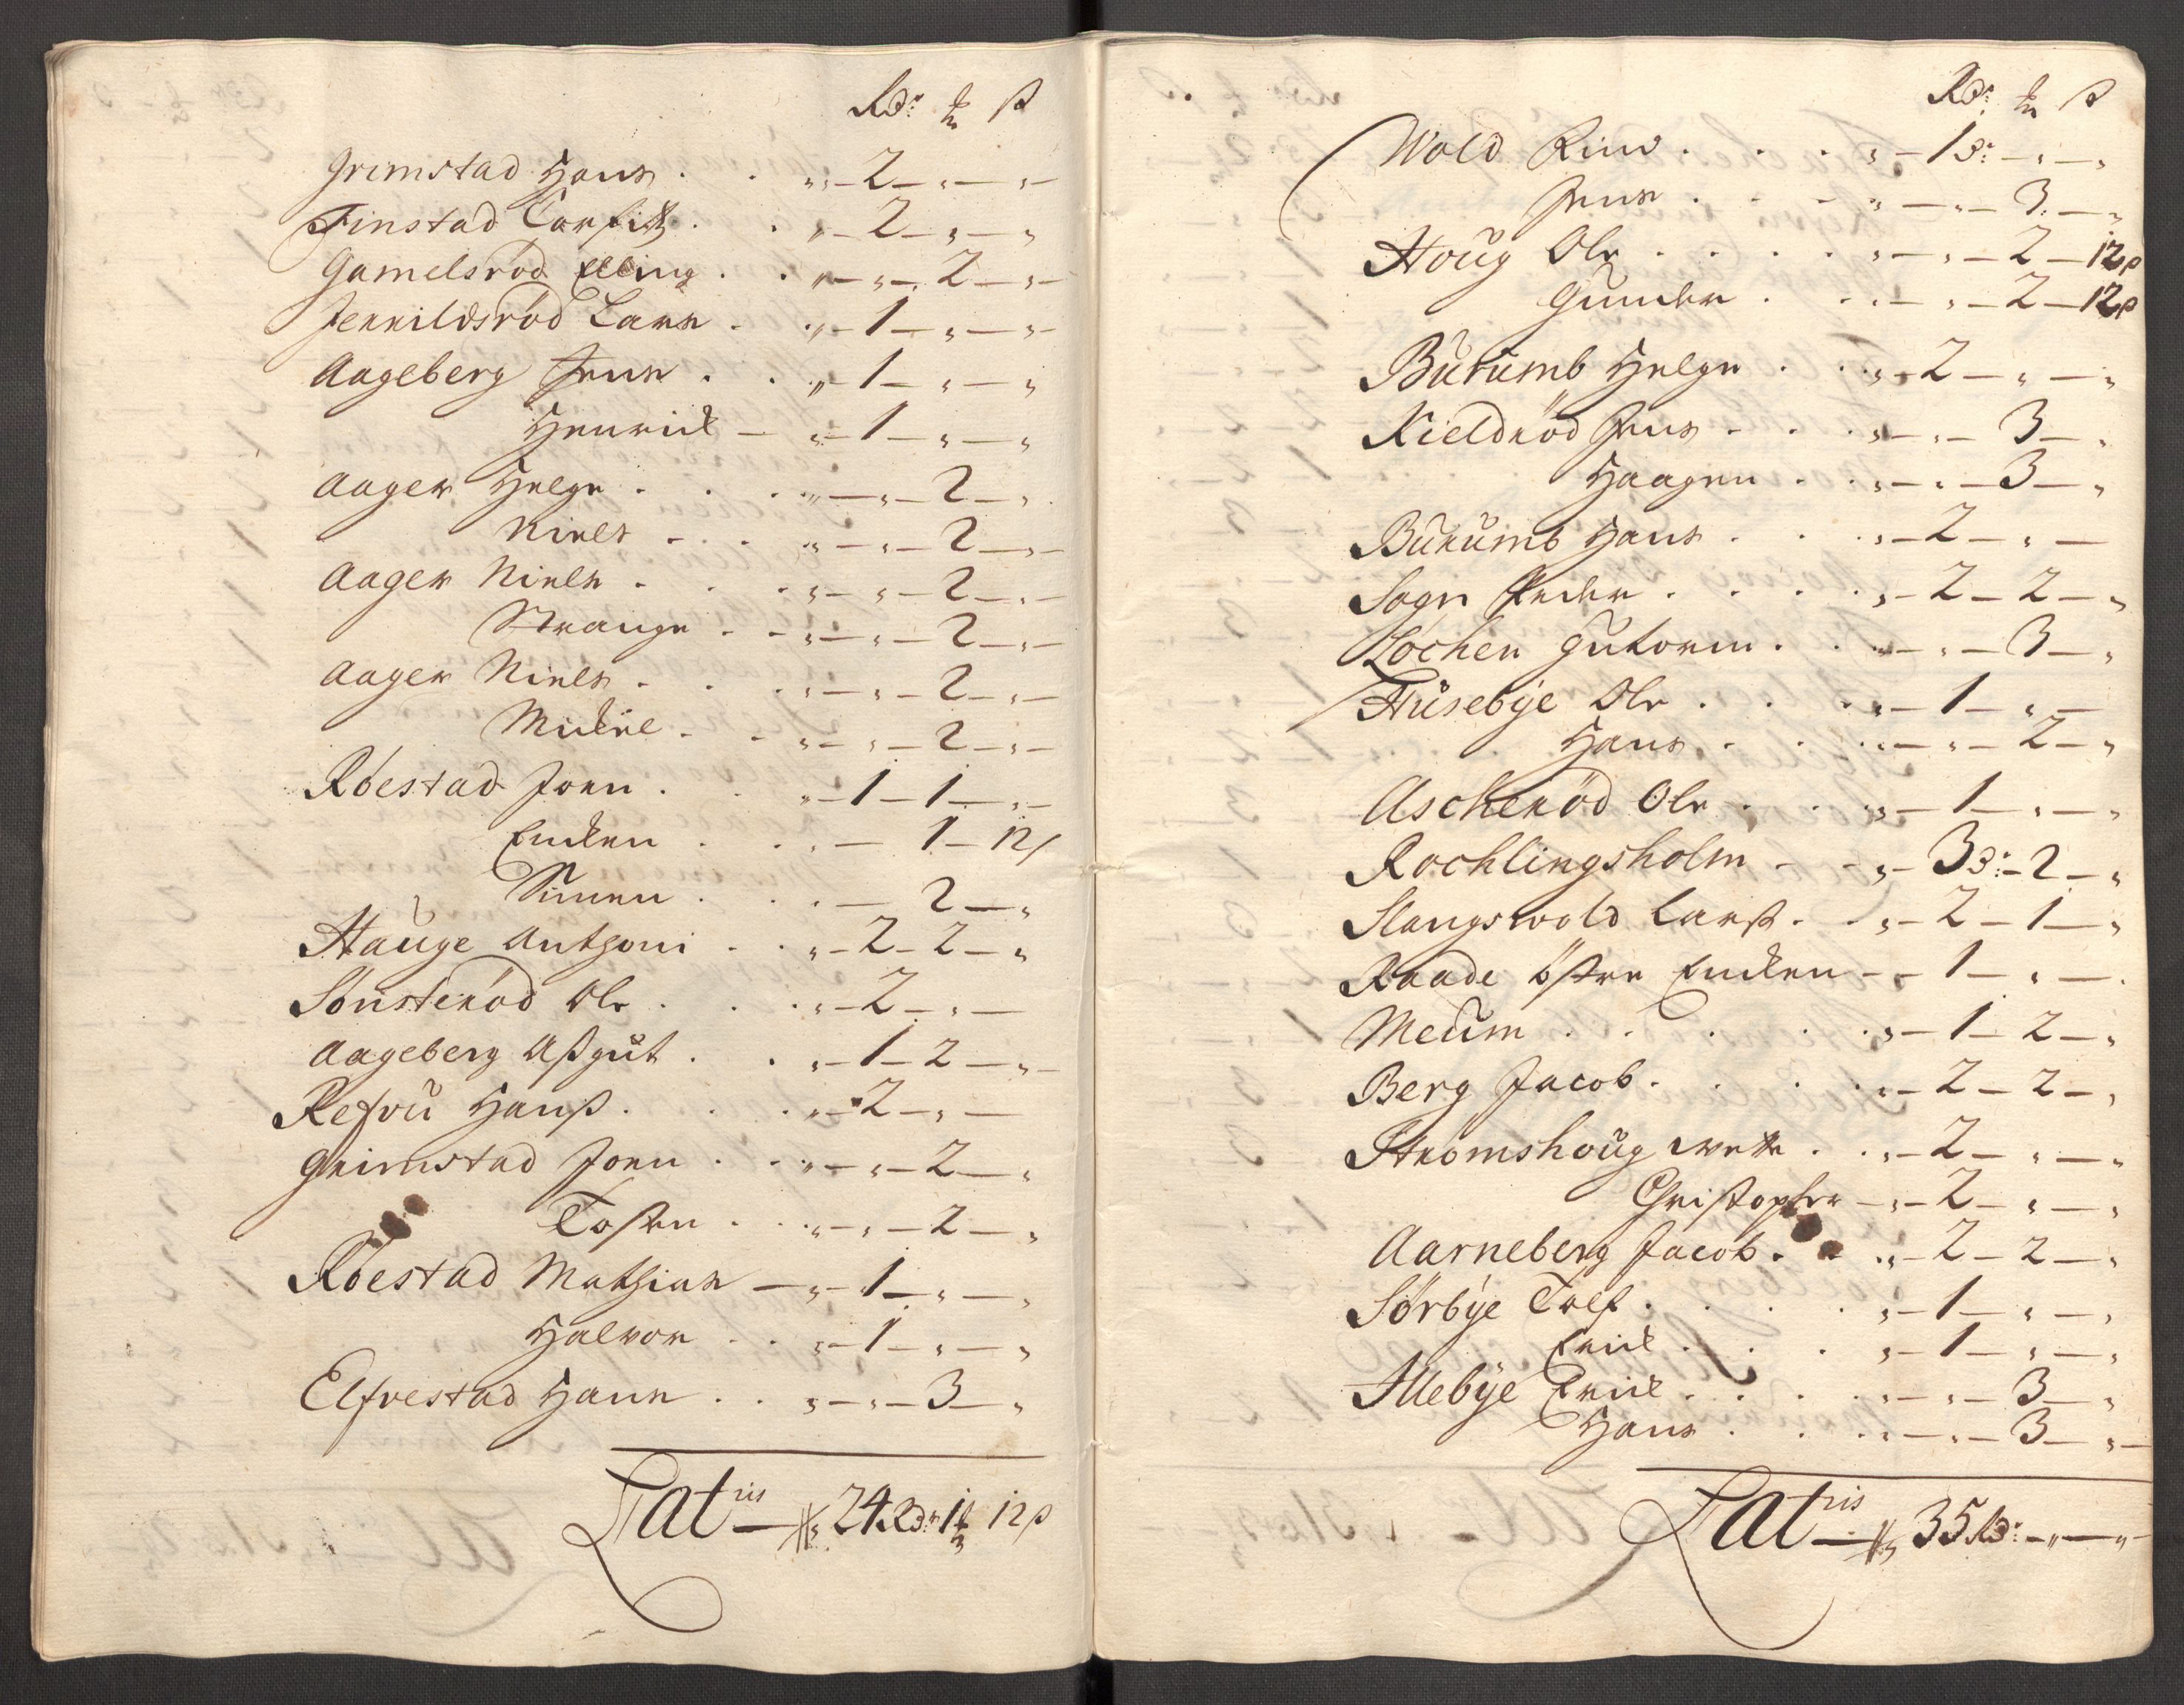 Rdr: ß
Grimstad Hans . . „ – 2 – „ – „ –
Finstad . . „ – 2 – „ – „
Gamelsröd Elling . . „ – „ – 2 – „ –
Jenkildsröd Lars . . „ – 1 – „ – „ –
Aageberg Jens . . „ – 1 – „ – „
Henrick – „ – 1 – „ – „
Aager Helge . . . „ – „ – 2 – „
Niels . . . „ – „ – 2 – „ –
Aager Niels . . . „ – „ – 2 – „ –
Strange . . „ – „ – 2 – „ –
Aager Niels . . . „ – „ – 2 – „ –
Mickel . . „ – „ – 2 – „ –
Röestad Joen . . „ – 1 – 1 – „ –
Encken . . „ – 1 – 12ß
Simen . . . – 2 – „
Hauge Anthoni . . „ – 2 – 2 – „
Sönsteröd Ole . . . „ – 2 – „ –
Aageberg Aßgut . . „ – 1 – 2 – „ –
Refou Hanß . . . „ – 2 – „ –
Grimstad Joen . . „ – „ – 2 – „
Tosten . . . „ – „ – 2 – „
Röestad Mathias – „ – 1 – „ – „
Halvor . . „ – 1 – „ – „
Elfvestad Hans . . „ – „ – 3 – „
Latris – 24 Rdr: 1 12ß
Rdr: ß
Wold . . . „ – 1 3: – „ – „
Jens . . . „ – „ – 3 – „
Houg Ole . . . . „ – „ – 2 – 12ß
Gunder . . . „ – „ – 2 – 12ß
Burumb Helge . . . „ – 2 – „ – „
Kieldröd Jens . . . „ – „ – 3 – „
Haagen . . „ – „ – 3 – „
Burumb Hans . . . „ – 2 – „ –
Sogn Peder . . . . „ – 2 – 2 – „
Löchen Gutorm . . „ – „ – 3 – „
Husebye Ole . . . „ – 1 – „ –
Hans . . . „ – „ – 2 – „
Ascheröd Ole . . . „ – 1 – „ – „
Rochlingsholm – – „ – 3 3: – 2 – „
Slangswold Larß . . „ – 2 – 1 – „
Raade östre Encken – – 1 – „ – .
Meum . . . . . „ – 1 – 2 – „
Berg Jacob . . . . „ – 2 – 2 – „
Stromshoug . . „ – 2 – „ – „
Christopher – „ – 2 – „ – „
Aarneberg Jacob . . „ – 2 – 2 – „
Sörbye Tolf . . . . „ – 1 – „ – „
Erick . . . „ – 1 – „ – „
Illebye Erick . . . . „ – „ – 3 – „
Hans . . . „ – „ – 3 – „ –
Latris – 35 Rdr: – „ – „ –